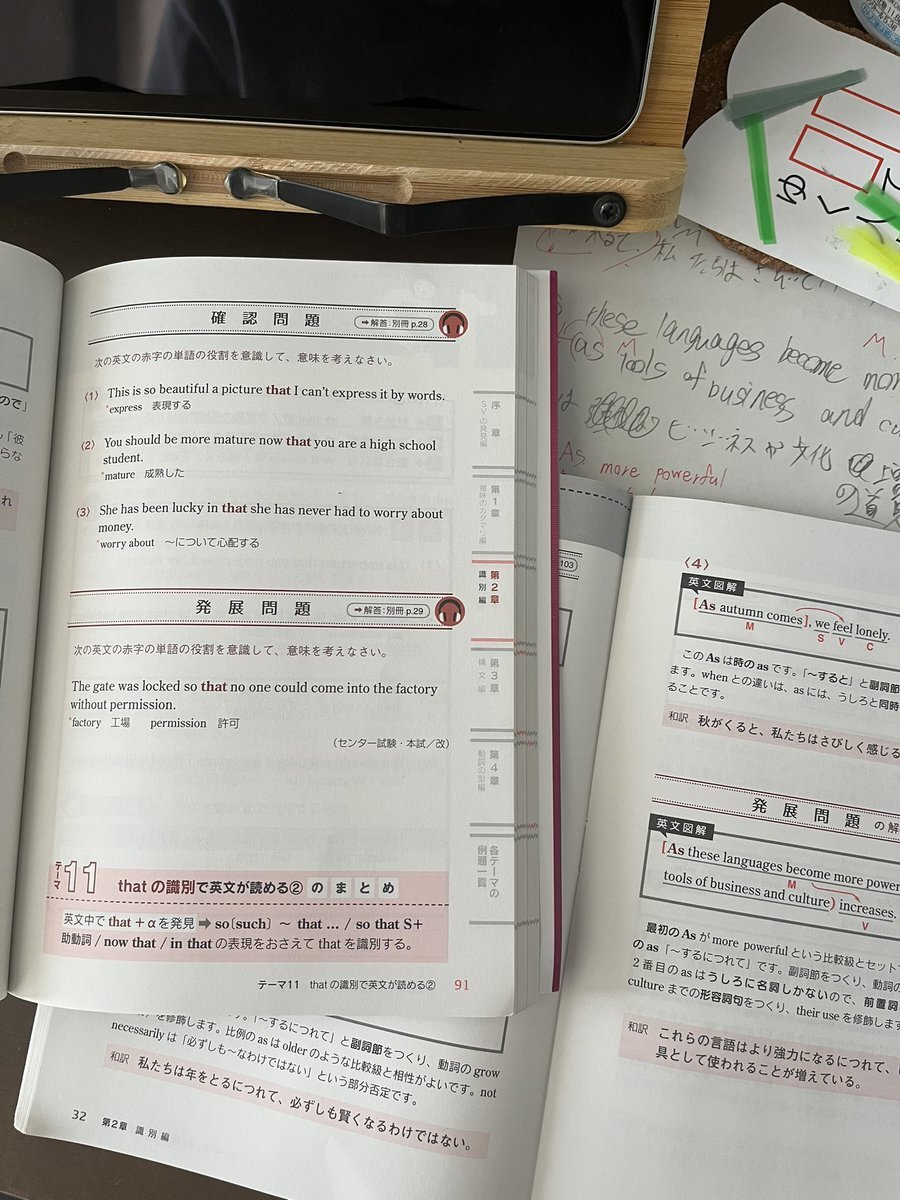 ので」
「彼
らな
れ
確認問題
➡解答:別冊 p.28
次の英文の赤字の単語の役割を意識して、意味を考えなさい。
〈1〉 This is so beautiful a picture that I can't express it by words.
*express 表現する
〈2〉 You should be more mature now that you are a high school
student.
*mature 成熟した
〈3〉 She has been lucky in that she has never had to worry about
money.
*worry about ～について心配する
発展問題
➡解答:別冊 p.29
次の英文の赤字の単語の役割を意識して、意味を考えなさい。
The gate was locked so that no one could come into the factory
without permission.
*factory 工場 permission 許可
(センター試験・本試/改)
テーマ 11 that の識別で英文が読める② のまとめ
英文中で that + α を発見 ➡ so〔such〕 ～ that … / so that S+
助動詞 / now that / in that の表現をおさえて that を識別する。
テーマ11 that の識別で英文が読める② 91
序章
SVの発見編
第1章
意味のカタマリ編
第2章
識別編
第3章
構文編
第4章
動詞の型編
各テーマの
例題一覧
ゆくて
私たちは
these languages become mor
(as tools of business and cu
M
M
は ビジネスや文化
As more powerful
103
〈4〉
英文図解
[As autumn comes], we feel lonely.
M S V C
この As は時の as です。「～すると」と副詞節
ます。when との違いは、as には、うしろと同時
ることです。
和訳 秋がくると、私たちはさびしく感じる
発展問題 の解
英文図解
[As these languages become more power
M
tools of business and culture) increases.
V
最初の As が more powerful という比較級とセット
の as「～するにつれて」です。副詞節をつくり、動詞の
2番目の as はうしろに名詞しかないので、前置詞
culture までの形容詞句をつくり、their use を修飾します
和訳 これらの言語はより強力になるにつれて、
具として使われることが増えている。
を修飾します。「～するにつれて」と副詞節をつくり、動詞の grow
を修飾します。比例の as は older のような比較級と相性がよいです。not
necessarily は「必ずしも～なわけではない」という部分否定です。
和訳 私たちは年をとるにつれて、必ずしも賢くなるわけではない。
32 第2章 識別編